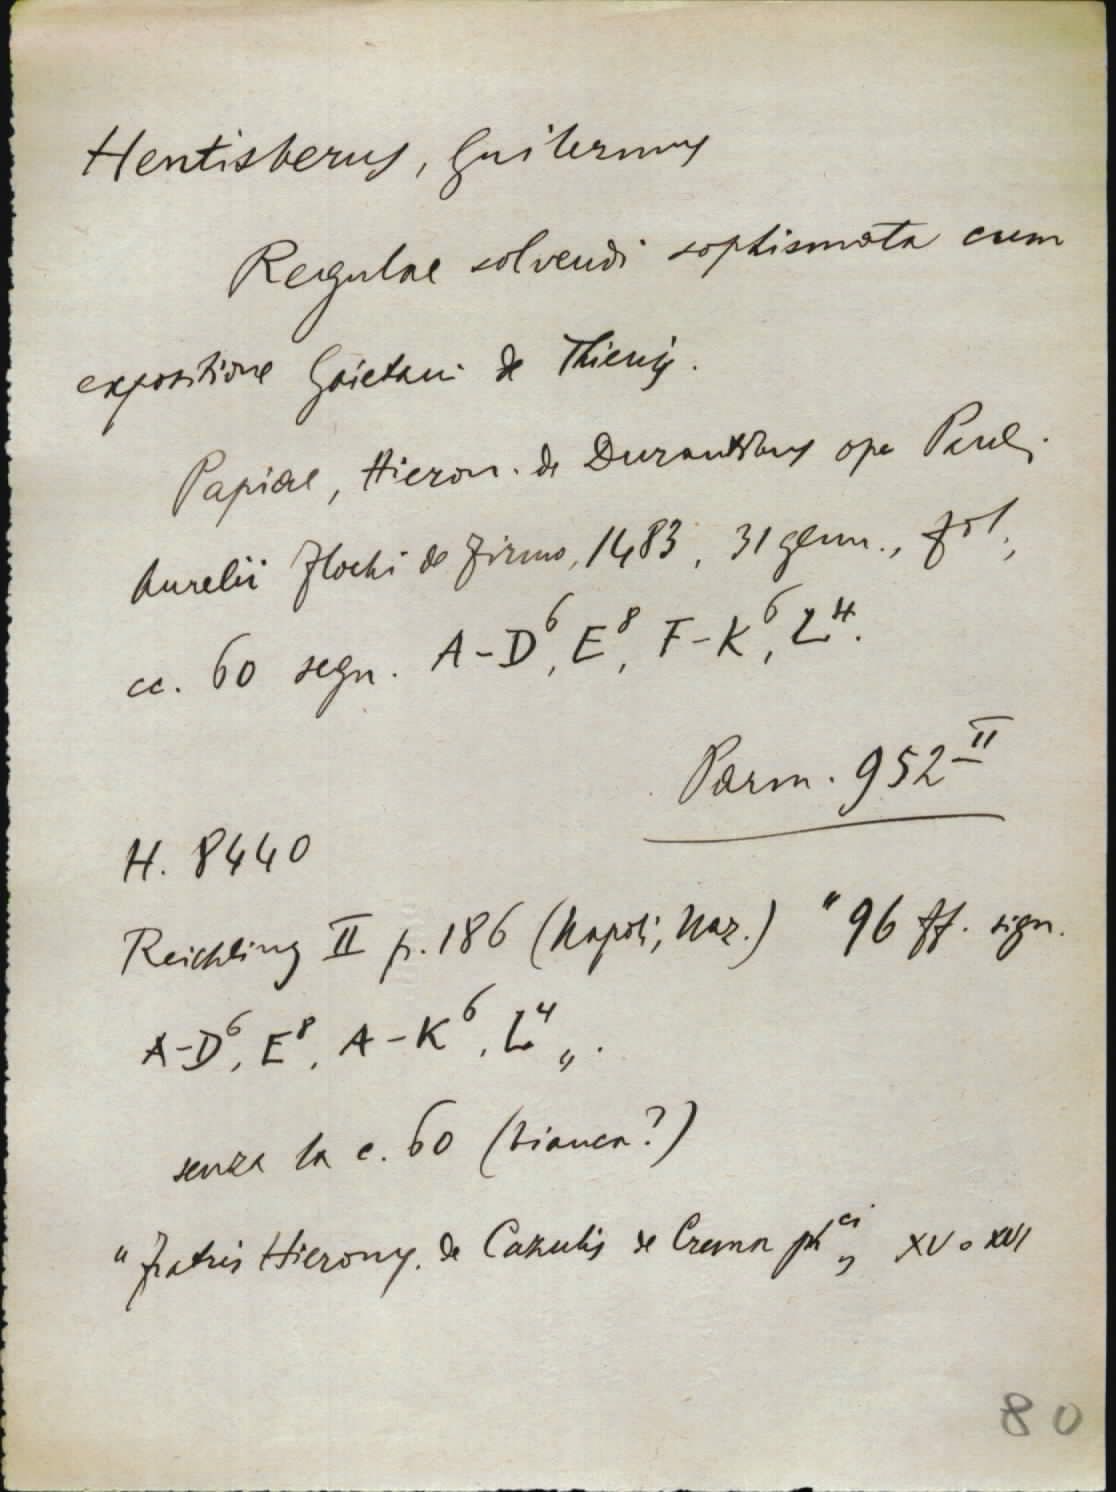 Hentisberus, Guilermus
Regulae solvendi sophismata cum
expositione Gaietani de Thienis.
Papiae, Hieron. de Durantibus ope Pauli
Aurelii Flochi de Firmo, 1483, 31 genn., fol.,
cc. 60 segn. A-D⁶, E⁸, F-K⁶, L⁴.
Parm. 952 II
H. 8440
Reichling II p. 186 (Napoli, Naz.) "96 ff. sign.
A-D⁶, E⁸, A-K⁶, L⁴".
senza la c. 60 (bianca?)
"Fratris Hierony. de Cazulis de Crema phci" XV o XVI
80